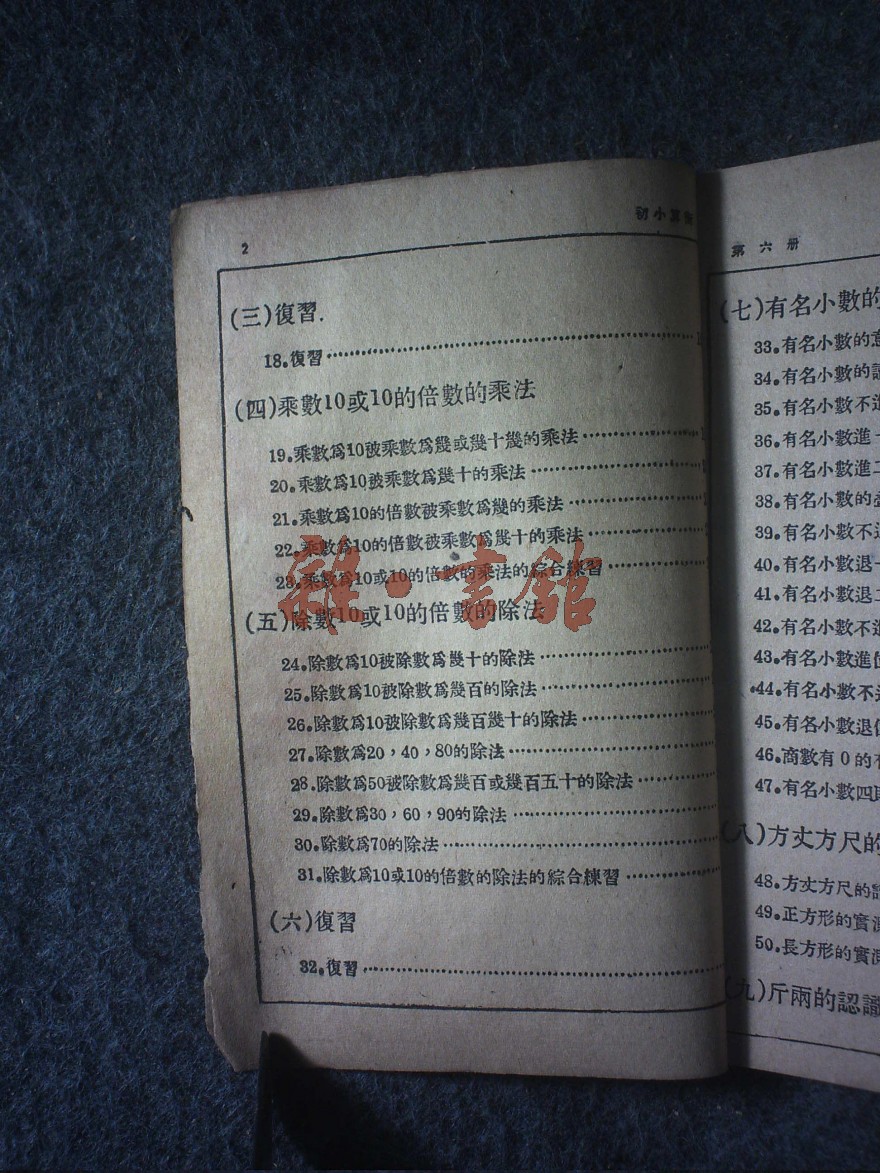 2
初小算術
(三)復習.
18.復習
(四)乘數10或10的倍數的乘法
19.乘數爲10被乘數爲幾或幾十幾的乘法
20.乘數爲10被乘數爲幾十的乘法
21.乘數爲10的倍數被乘數爲幾的乘法
22.乘數爲10的倍數被乘數爲幾十的乘法
23.乘數爲10或10的倍數的乘法的綜合練習
雜·書館
(五)除數10或10的倍數的除法
24.除數爲10被除數爲幾十的除法
25.除數爲10被除數爲幾百的除法
26.除數爲10被除數爲幾百幾十的除法
27.除數爲20,40,80的除法
28.除數爲50被除數爲幾百或幾百五十的除法
29.除數爲30,60,90的除法
30.除數爲70的除法
31.除數爲10或10的倍數的除法的綜合練習
(六)復習
32.復習
第六册
(七)有名小數的
33.有名小數的意
34.有名小數的
35.有名小數不進
36.有名小數進
37.有名小數進
38.有名小數的
39.有名小數不
40.有名小數退
41.有名小數退
42.有名小數不進
43.有名小數進位
44.有名小數不
45.有名小數退位
46.商數有0的有
47.有名小數四則
(八)方丈方尺的
48.方丈方尺的
49.正方形的實測
50.長方形的實測
(九)斤兩的認識